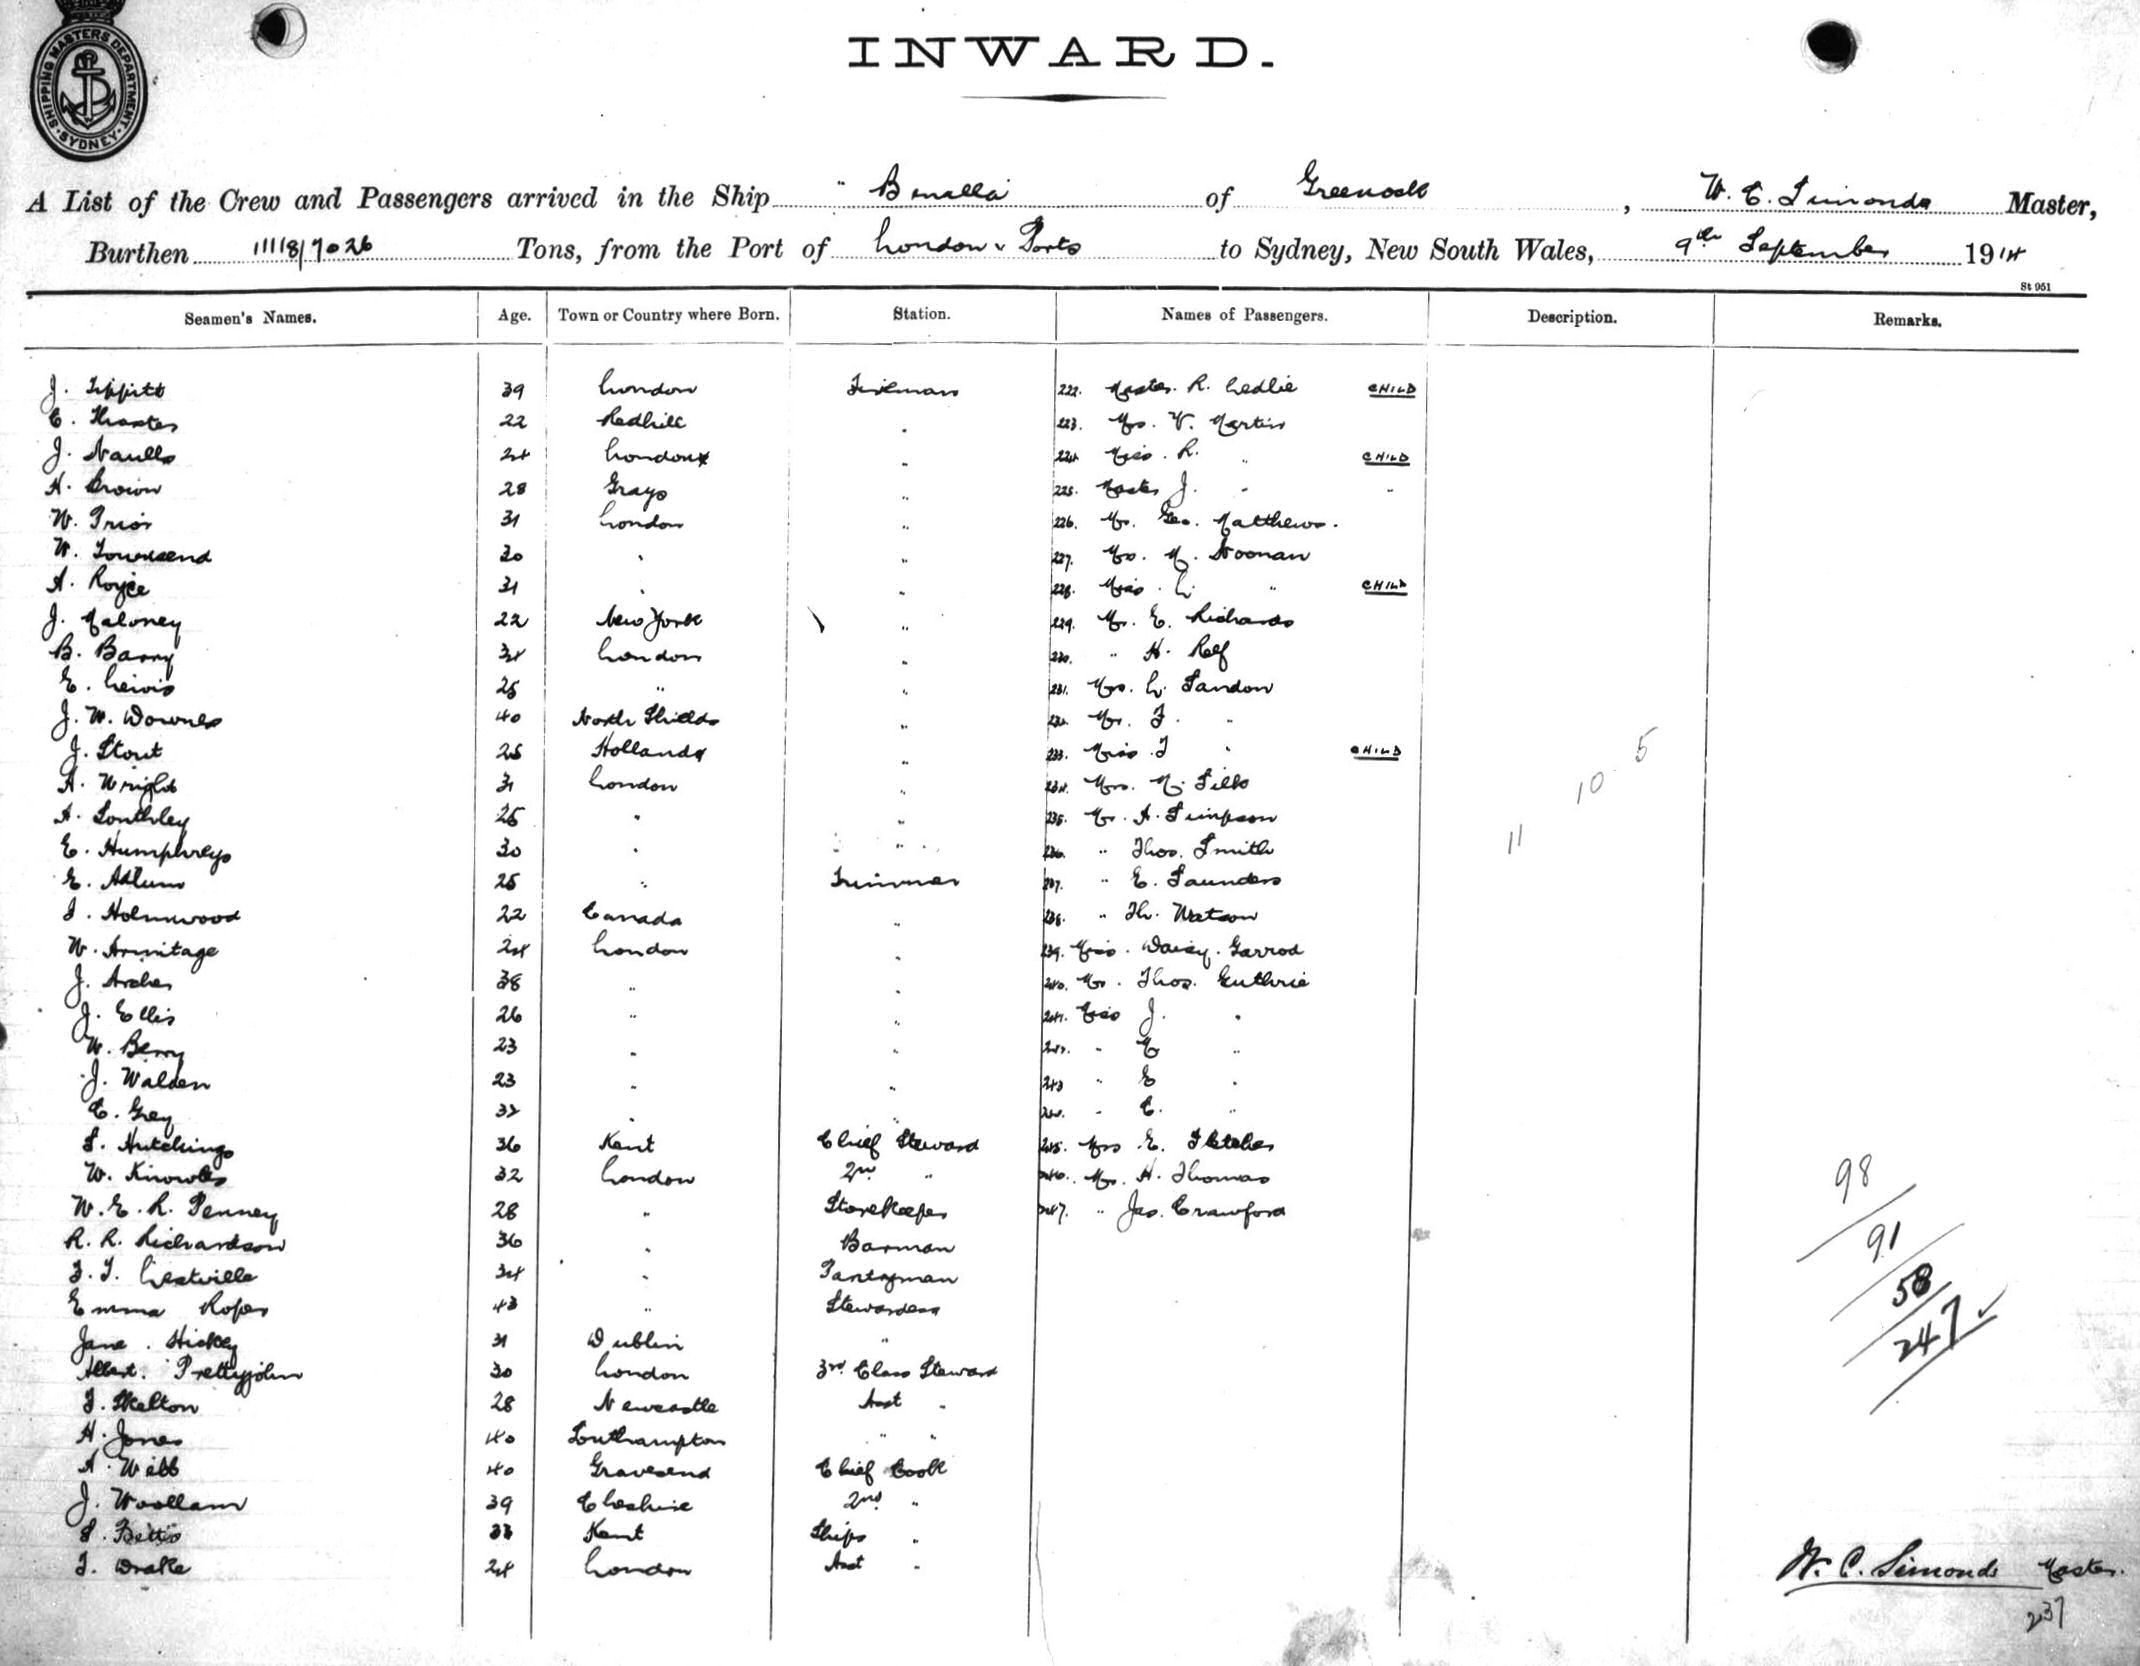 SHIPPING MASTERS DEPARTMENT. SYDNEY
INWARD.
A List of the Crew and Passengers arrived in the Ship "Benalla" of Greenock, W. C. Simonds Master,
Burthen 11118/7026 Tons, from the Port of London & Ports to Sydney, New South Wales, 9th September 1914
St 951
Seamen's Names. Age. Town or Country where Born. Station. Names of Passengers. Description. Remarks.
J. Tippitt 39 London Fireman 222. Master. R. Ledlie CHILD
C. 22 Redhill " 223. Mrs. V. Martin
J. Naulls 24 London " 224. Miss. R. " CHILD
H. Brown 28 Grays " 225. Master J. " "
W. Prior 31 London " 226. Mr. Geo. Matthews.
W. Townsend 30 " " 227. M. Noonan
A. Royce 31 " " 228. Miss. L. " CHILD
J. Maloney 22 New York " 229. Mr. E. Richards
B. Barry 34 London " 230. " H. Relf
E. Lewis 25 " " 231. Mrs. L. Sandon
J. W. Downes 40 North Shields " 232. Mr. F. "
J. Stout 25 Holland " 233. Miss. I " CHILD 5
A. Wright 31 London " 234. Mrs. M. 10
A. Southley 25 " " 235. Mr. A. Simpson
E. Humphreys 30 " " 236. " Thos. Smith 11
E. Adlum 25 " Trimmer 237. " E. Saunders
J. Holmwood 22 Canada " 238. " Th. Watson
W. Armitage 24 London " 239. Miss. Daisy. Garrod
J. Archer 38 " " 240. Mr. Thos. Guthrie
J. Ellis 26 " " 241. Miss J. "
W. Berry 23 " " 242. " M "
J. Walden 23 " " 243 " E "
C. Grey 32 " " 244. " C. "
S. Hutchings 36 Kent Chief Steward 245. Mrs E. Fletcher
W. Knowles 32 London 2nd " 246. H. Thomas 98
W. E. R. Penney 28 " Storekeeper 247. " Jas. Crawford
R. R. Richardson 36 " Barman 91
34 " Pantryman 58
Emma Roper 43 " Stewardess
Jane. Hickey 31 Dublin " 247
Albert. Prettyjohn 30 London 3rd Class Steward
J. Skelton 28 Newcastle Asst "
H. Jones 40 Southampton " "
A. Webb 40 Gravesend Chief Cook
J. Woollam 39 Cheshire 2nd "
S. Bettis 33 Kent Ships "
J. Drake 24 London Asst "
W. C. Simonds Master.
237